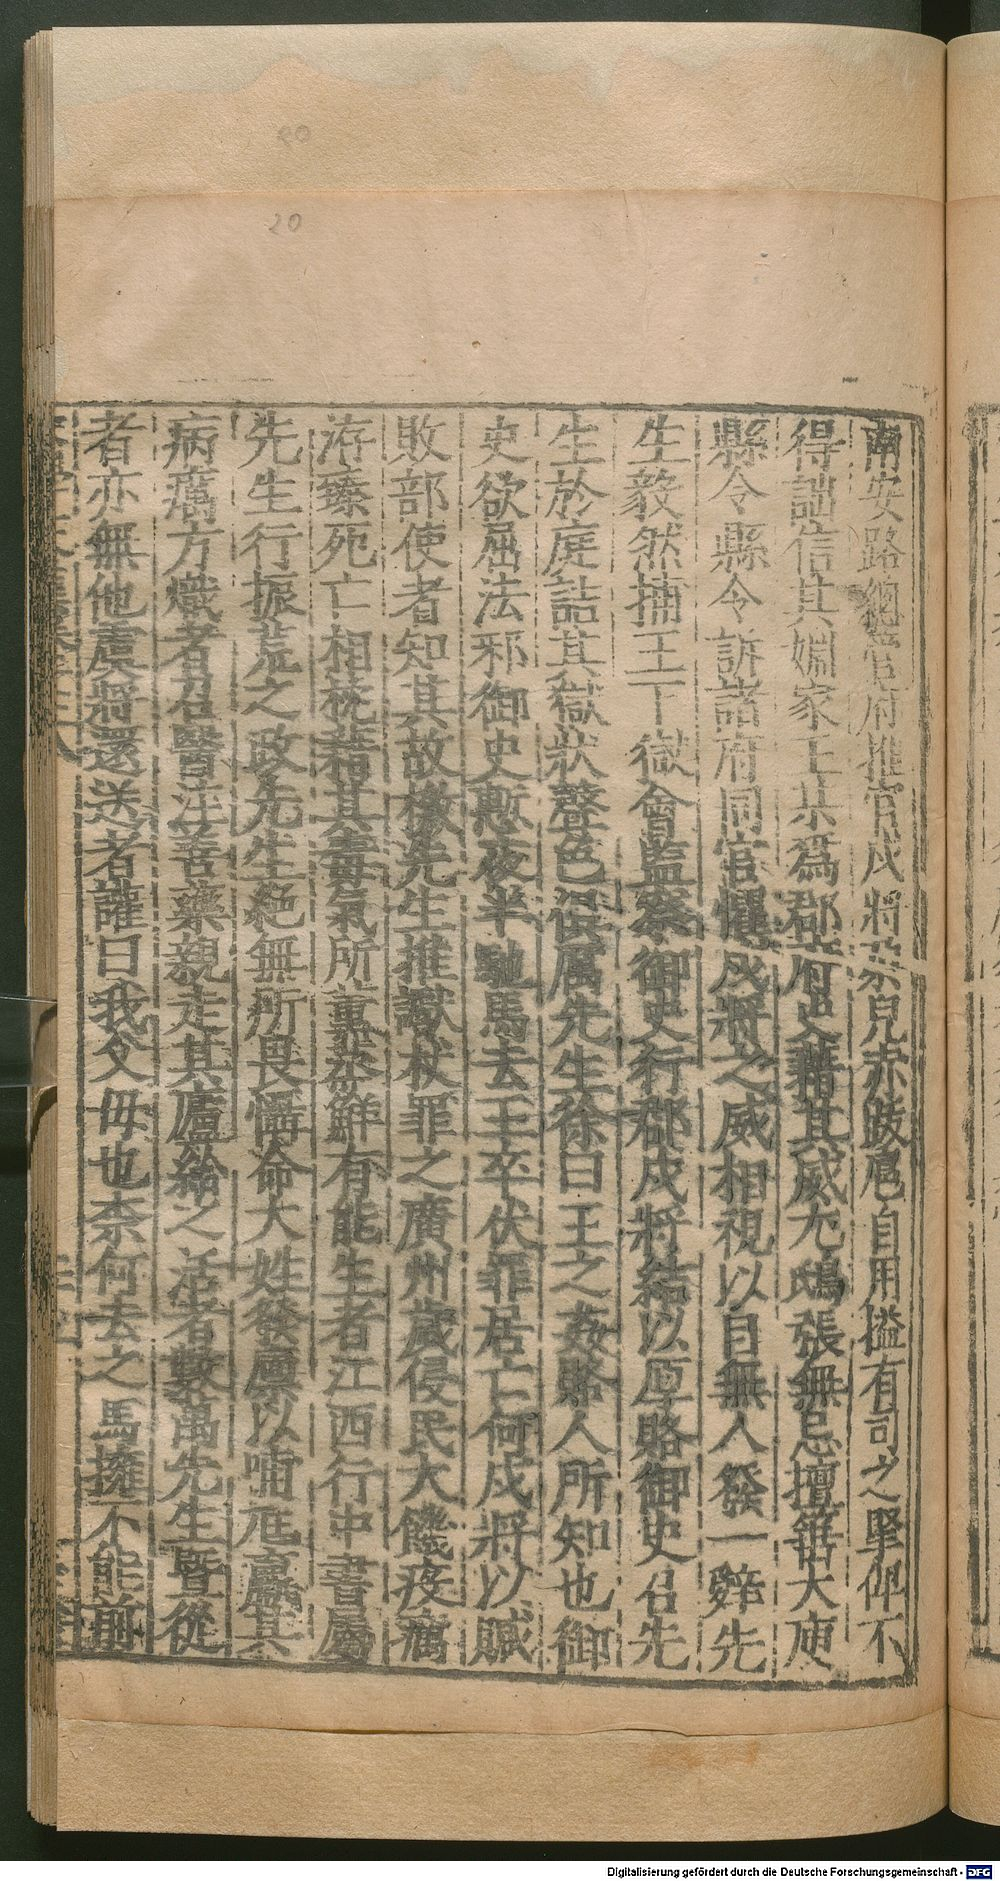 南安路總管府推官戍將朶兒赤跋扈自用搤有司之掔俾不
得詘信其婣家王某爲郡府史藉其威尤鴟張無忌擅笞大庾
縣令縣令訴諸府同官懼戍將之威相視以目無人發一辤先
生毅然捕王下獄會監察御史行郡戍將結以厚賂御史召先
生於庭詰其獄狀聲色俱厲先生徐曰王之姦賂人所知也御
史欲屈法邪御史慙夜半馳馬去王卒伏罪居亡何戍將以贓
敗部使者知其故檄先生推讞杖罪之廣州歲侵民大饑疫癘
洊臻死亡相枕藉其毒氣所薰烝鮮有能生者江西行中書屬
先生行振荒之政先生絶無所畏懾命大姓發廪以哺尫羸其
病癘方熾者召醫注善藥親走其廬給之活者數萬先生曁從
者亦無他虞將還送者讙曰我父毋也柰何去之馬擁不能前
20
Digitalisierung gefördert durch die Deutsche Forschungsgemeinschaft - DFG